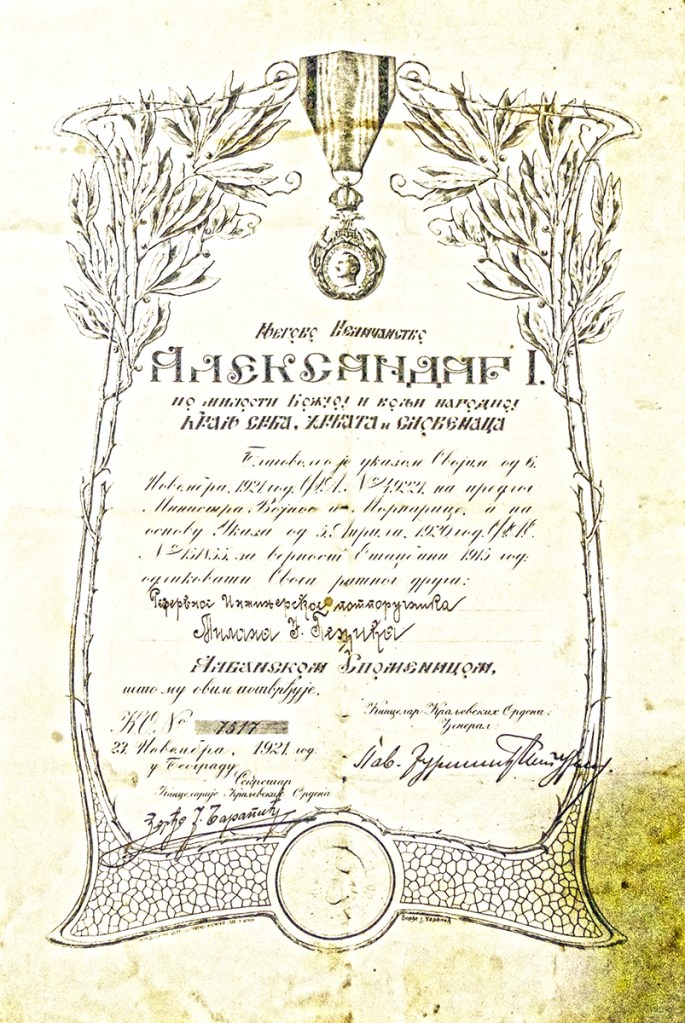 Његово Величанство
Александар I.
по милости Божјој и вољи народној
Краљ Срба, Хрвата и Словенаца
Благоволео је указом Својим од 6.
Новембра, 1921 год. на предлог
Министра Војног и Морнарице, а на
основу Указа од 5. Априла, 1920 год.
за верност Отаџбини 1915 год.
одликовати Свога ратног друга:
Резервног Инжињерског потпоручника
Милана
Албанском Споменицом,
што му овим потврђује.
Канцелар Краљевских Ордена:
Ђенерал
КО. № 7517
23 Новембра, 1921. год.
у Београду
Секретар
Канцеларије Краљевских Ордена